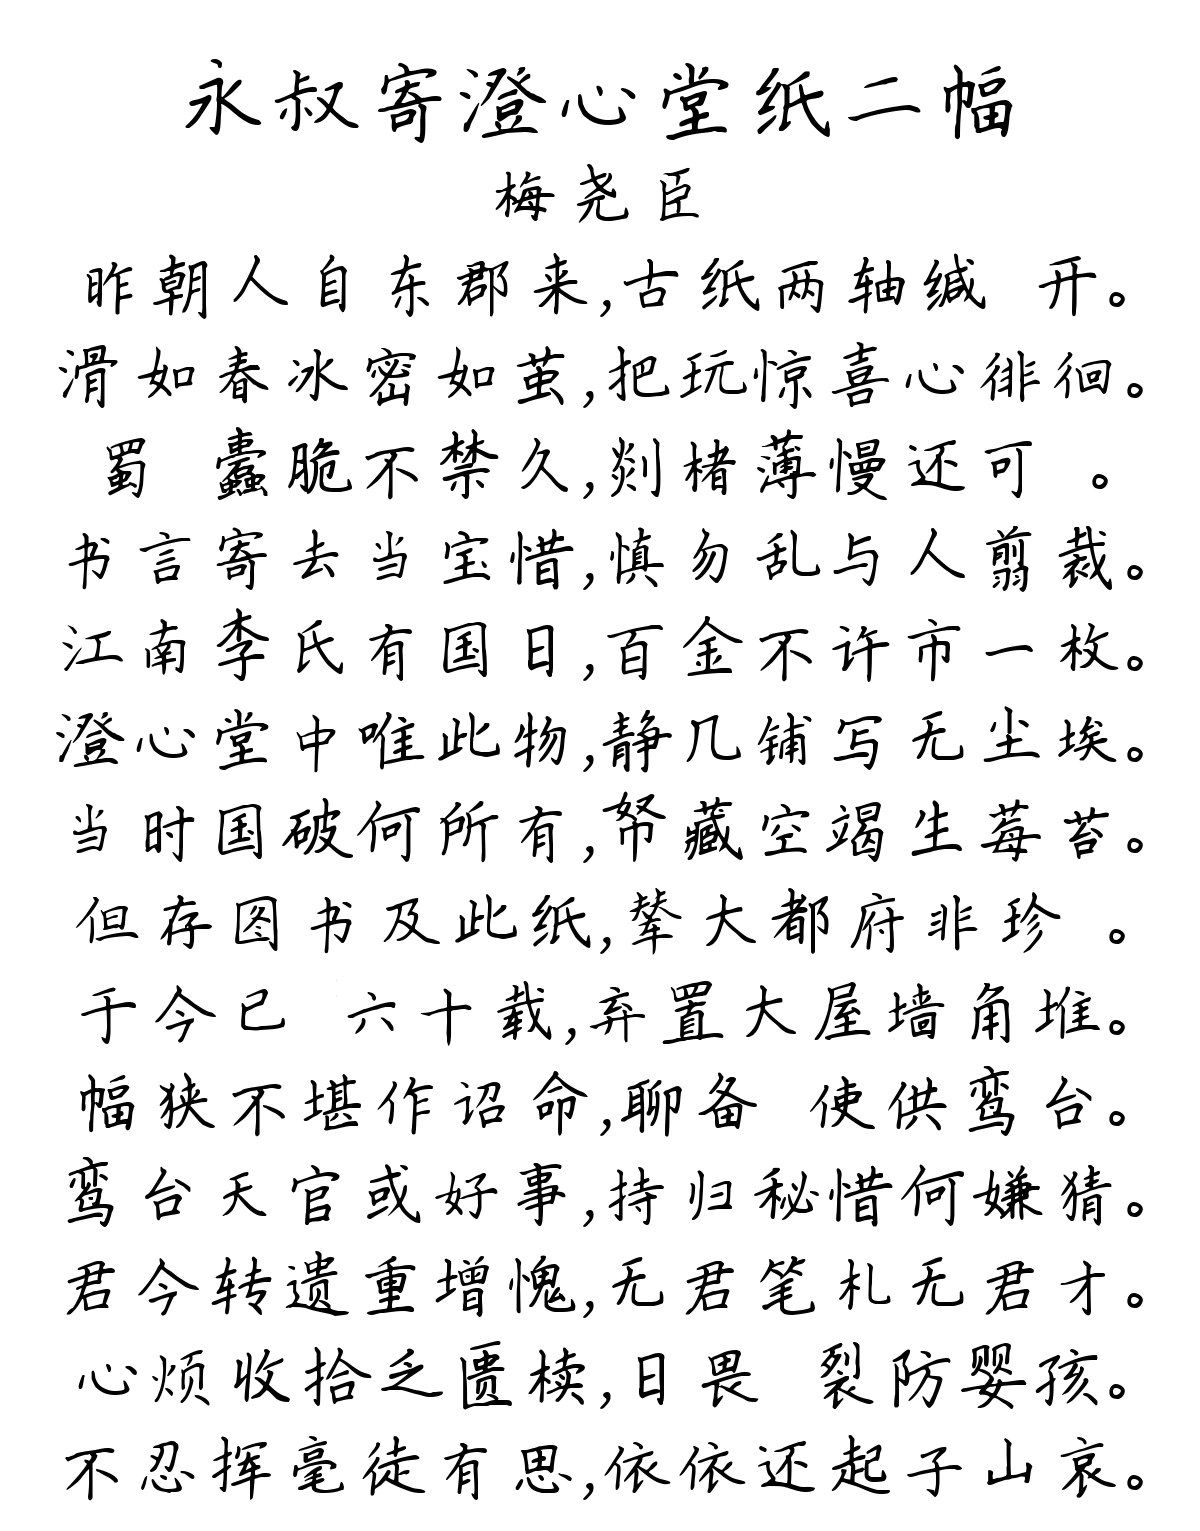 永叔寄澄心堂纸二幅
梅尧臣
昨朝人自东郡来,古纸两轴缄 开。
滑如春冰密如茧,把玩惊喜心徘徊。
蜀 蠹脆不禁久,剡楮薄慢还可 。
书言寄去当宝惜,慎勿乱与人剪裁。
江南李氏有国日,百金不许市一枚。
澄心堂中唯此物,静几铺写无尘埃。
当时国破何所有,帑藏空竭生莓苔。
但存图书及此纸,辇大都府非珍 。
于今已 六十载,弃置大屋墙角堆。
幅狭不堪作诏命,聊备 使供鸾台。
鸾台天官或好事,持归秘惜何嫌猜。
君今转遗重增愧,无君笔札无君才。
心烦收拾乏匮椟,日畏 裂防婴孩。
不忍挥毫徒有思,依依还起子山哀。